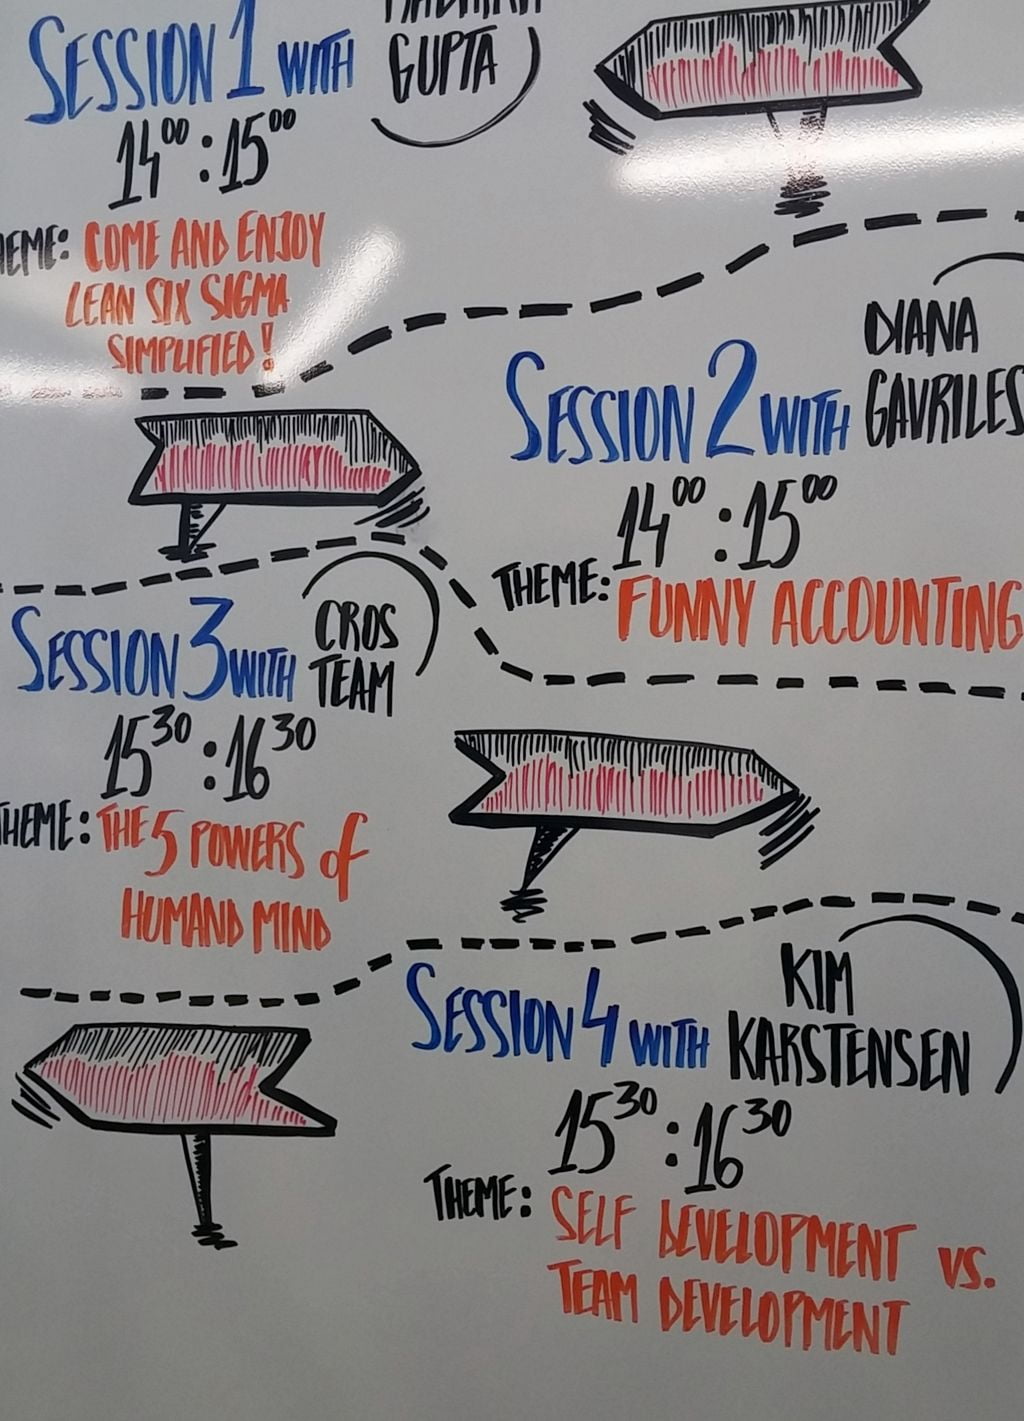 SESSION 1 WITH
GUPTA
14⁰⁰ : 15⁰⁰
COME AND ENJOY
LEAN SIX SIGMA
SIMPLIFIED!
SESSION 2 WITH
DIANA
GAVRILES
14⁰⁰ : 15⁰⁰
THEME: FUNNY ACCOUNTING
SESSION 3 WITH
CROS
TEAM
15³⁰ : 16³⁰
THEME: THE 5 POWERS of
HUMAND MIND
SESSION 4 WITH
KIM
KARSTENSEN
15³⁰ : 16³⁰
THEME: SELF DEVELOPMENT VS.
TEAM DEVELOPMENT